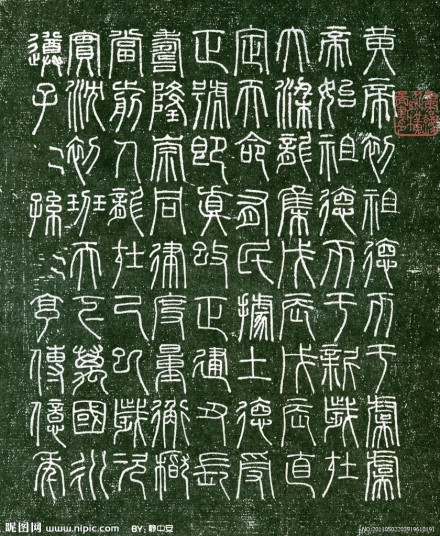 黃帝初祖德帀于虞虞
帝始祖德帀于新歲在
大梁龍集戊辰戊辰直
定天命有民據土德受
正號即真改正建丑長
壽隆崇同律度量衡稽
當前人龍在己巳歲次
實沈初班天下萬國永
遵子〻孫〻亨傳億年
昵图网 www.nipic.com BY：静中安
NO:20110502203919610191